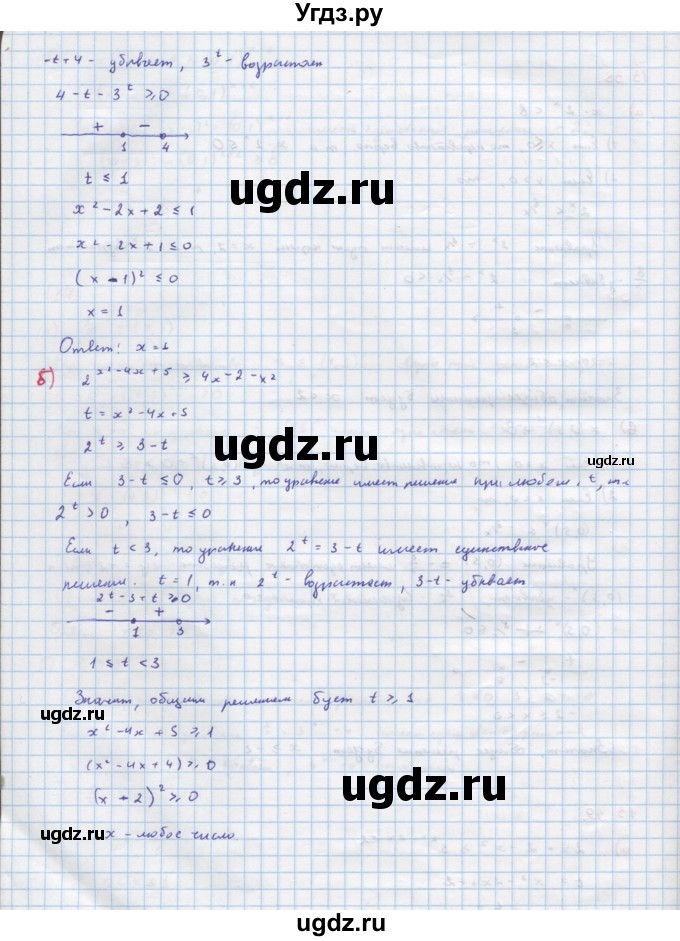 Угдз.ру
-t+4 - убывает, 3^t - возрастает
4 - t - 3^t ≥ 0
+ -
1 4
t ≤ 1
ugdz.ru
x² - 2x + 2 ≤ 1
x² - 2x + 1 ≤ 0
(x - 1)² ≤ 0
x = 1
Ответ: x = 1
б) 2^(x² - 4x + 5) ≥ 4x - 2 - x²
t = x² - 4x + 5
2^t ≥ 3 - t
ugdz.ru
Если 3 - t ≤ 0, t ≥ 3, то уравнение имеет решение при любом t, т.к
ugdz.ru
2^t > 0, 3 - t ≤ 0
Если t < 3, то уравнение 2^t = 3 - t имеет единственное
решение. t = 1, т.к 2^t - возрастает, 3 - t - убывает
2^t - 3 + t ≥ 0
- +
1 3
1 ≤ t < 3
Значит, общим решением бует t ≥ 1
ugdz.ru
x² - 4x + 5 ≥ 1
(x² - 4x + 4) ≥ 0
ugdz.ru
(x - 2)² ≥ 0
ugdz.ru
x - любое число.
ugdz.ru